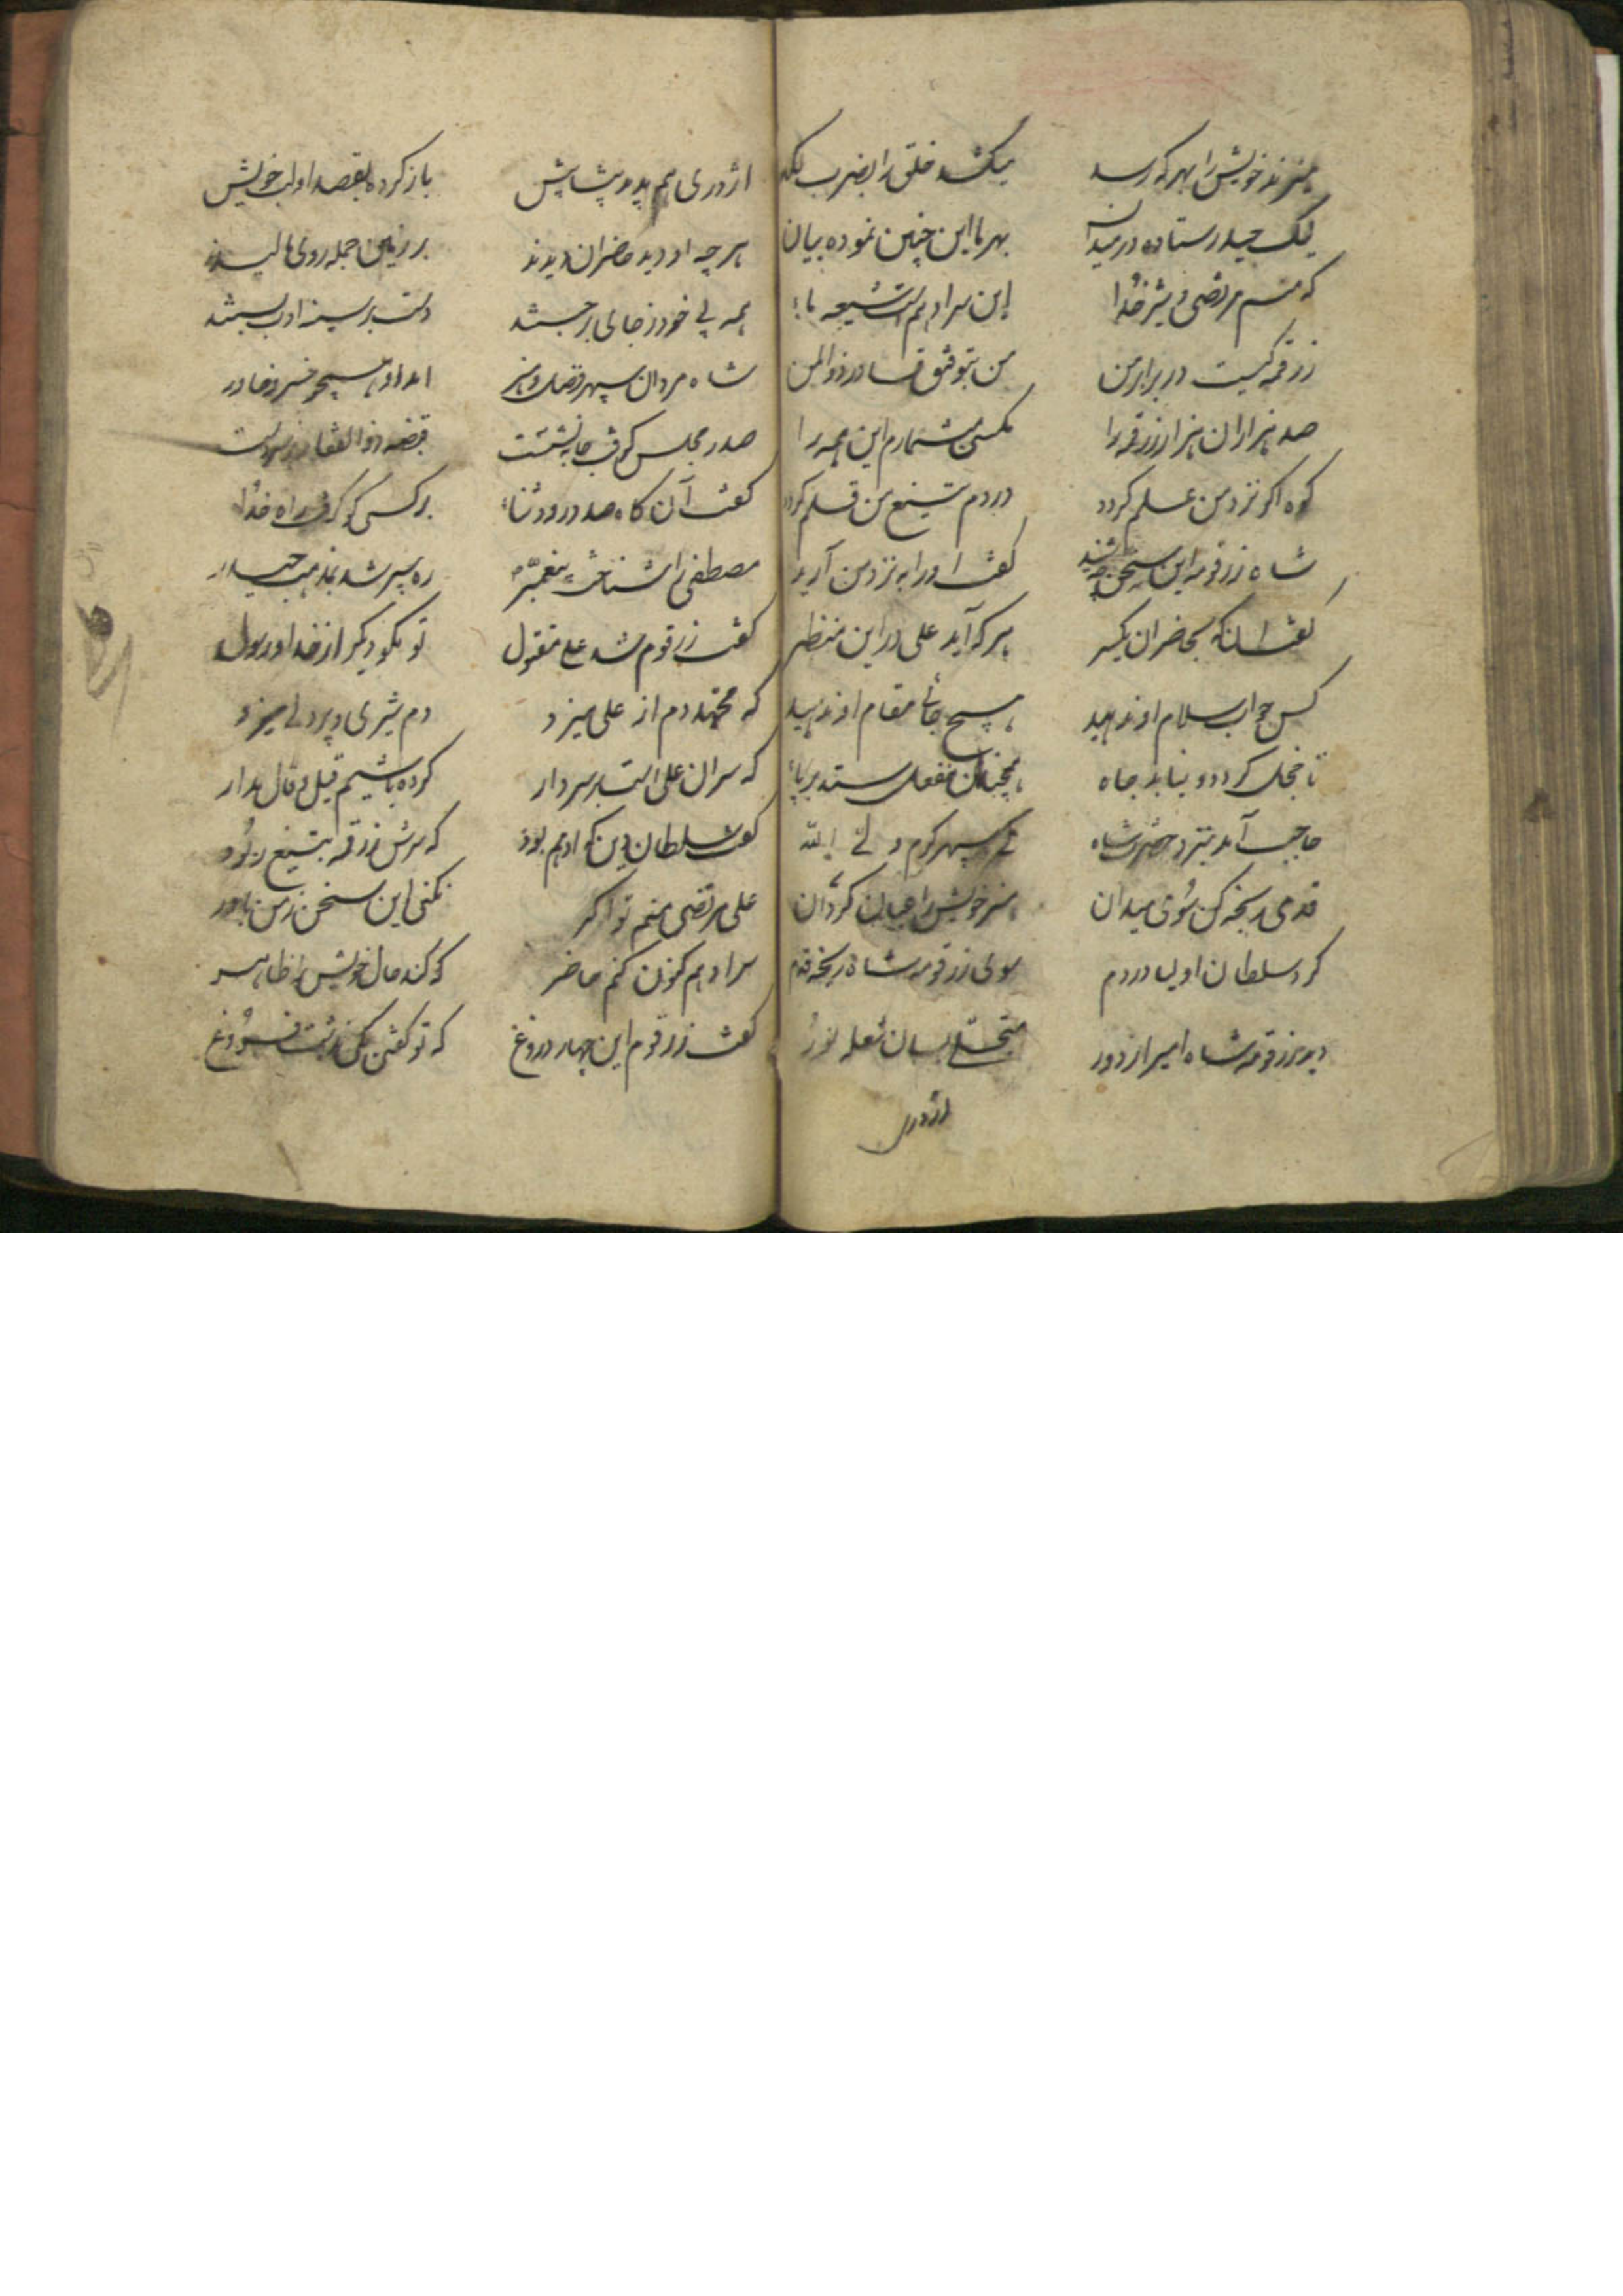 میزند خویش را بهر که رسد میکشد خلق را بضرب لکد
لیک حیدر ستاده در میدان بهر ما این چنین نموده بیان
که منم مرتضی و شیر خدا این سر ادهم است شیعه ما
زرقمه کیست در برابر من من بتوفیق قادر ذوالمن
صد هزاران هزار زرقمه را مکسی مشمارم این همه را
کوه اکر نزد من علم کردد در دم تیغ من قلم کردد
شاه زرقومه این سخن شنید کفت او را به نزد من آرید
کفت آنکه بحاضران یکسر هر که آید علی در این منظر
کس جواب سلام او ندهید هیچ جائی مقام او ندهید
تا خجل کردد و نیابد جاه همچنان منفعل ستد برپا
حاجب آمد بنزد حضرت شاه کای سپهر کرم ولی الله
قدمی رنجه کن سوی میدان هنر خویش را عیان کردان
کرد سلطان اولیا در دم سوی زرقومه شاه رنجه قدم
دید زرقومه شاه امیر از دور متجلی بسان شعله نور
اژدری
اژدری هم پدید پیشاپیش باز کرده بقصد او لب خویش
هر چه او دید حاضران دیدند بر زمین جمله روی مالیدند
همه بی خود ز جای برجستند دست بر سینه ادب بستند
شاه مردان سپهر فضل و هنر آمد او همچو خسرو خاور
صدر مجلس کرفت جا بنشست قبضه ذوالفقار بر سر دست
کفت آن کاه صد درود و ثنا بر کسی کو کرفت راه خدا
مصطفی را شناخت پیغمبر ره سپر شد بمذهب حیدر
کفت زرقوم شد علی مقتول تو بکو دیکر از خدا و رسول
که محمد دم از علی میزد دم شیری و پردلی میزد
که سر آن علی است بر سر دار کرده باشیم قیل و قال مدار
کفت سلطان دین که ادهم بود که سرش زرقمه بتیغ ربود
علی مرتضی منم تو اکر نکنی این سخن ز من باور
سر ادهم کنون کنم حاضر کو کند حال خویش را ظاهر
کفت زرقوم این چهار دروغ که تو کفتی